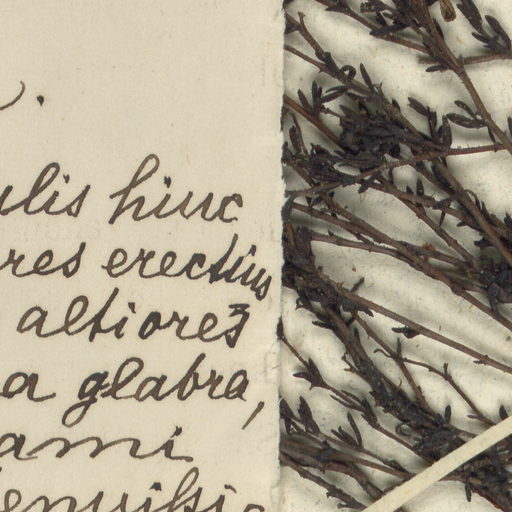 ulis hinc
res erectius
altiores
a glabra,
ami